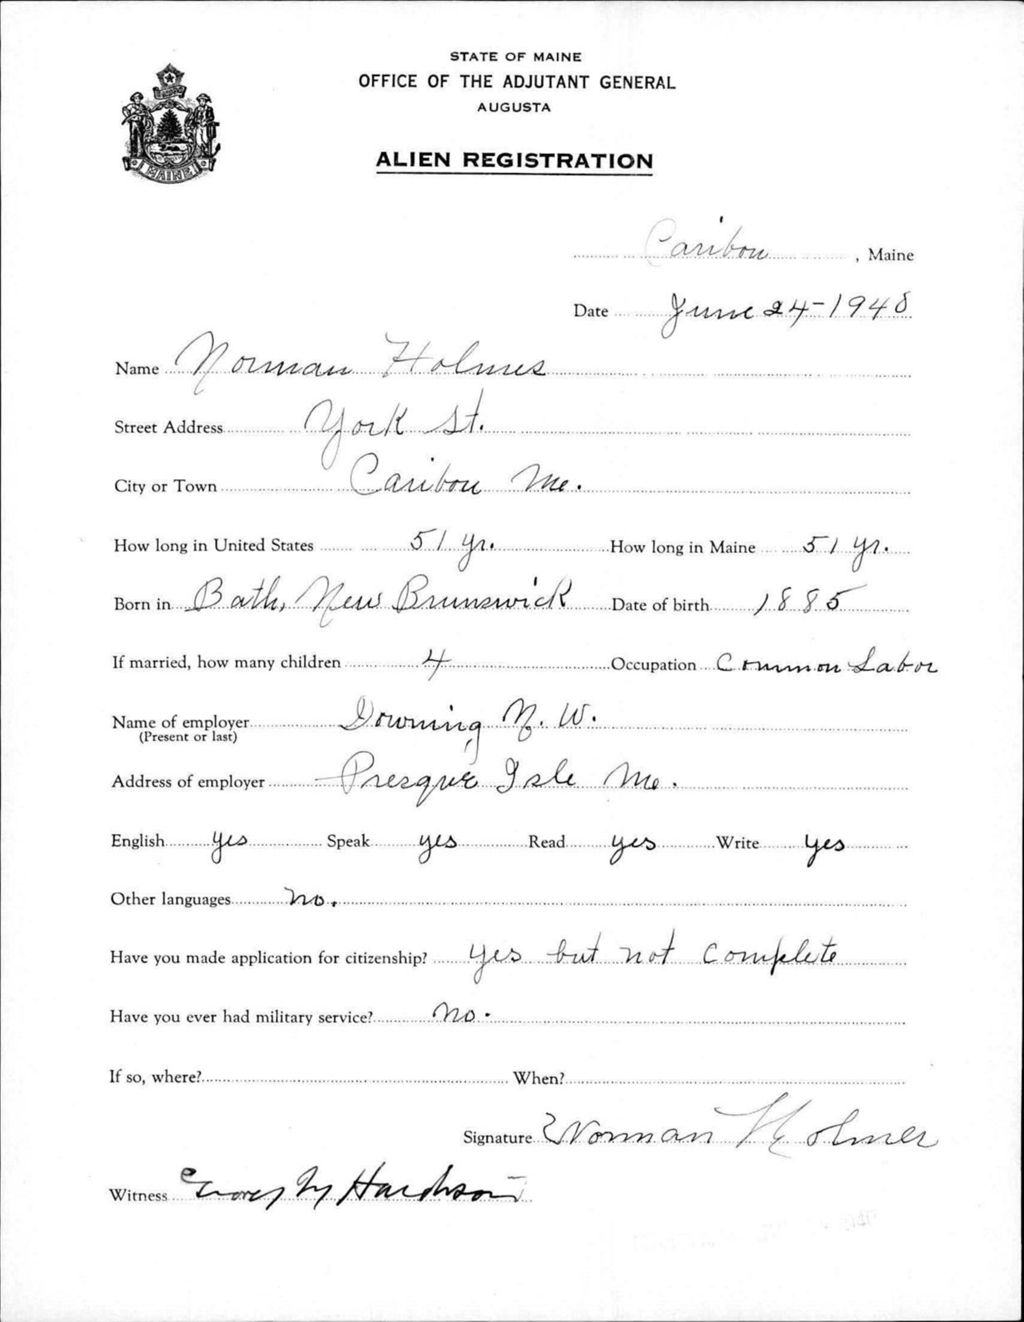 STATE OF MAINE
OFFICE OF THE ADJUTANT GENERAL
AUGUSTA
ALIEN REGISTRATION
MAINE
Caribou, Maine
Date June 24-1940
Name Norman Holmes
Street Address York St.
City or Town Caribou Me.
How long in United States 51 yr. How long in Maine 51 yr.
Born in Bath, New Brunswick Date of birth 1885
If married, how many children 4 Occupation Common Labor
Name of employer Downing N. W.
(Present or last)
Address of employer Presque Isle Me.
English yes Speak yes Read yes Write yes
Other languages no.
Have you made application for citizenship? yes but not complete
Have you ever had military service? no.
If so, where? When?
Signature Norman Holmes
Witness M Hardison